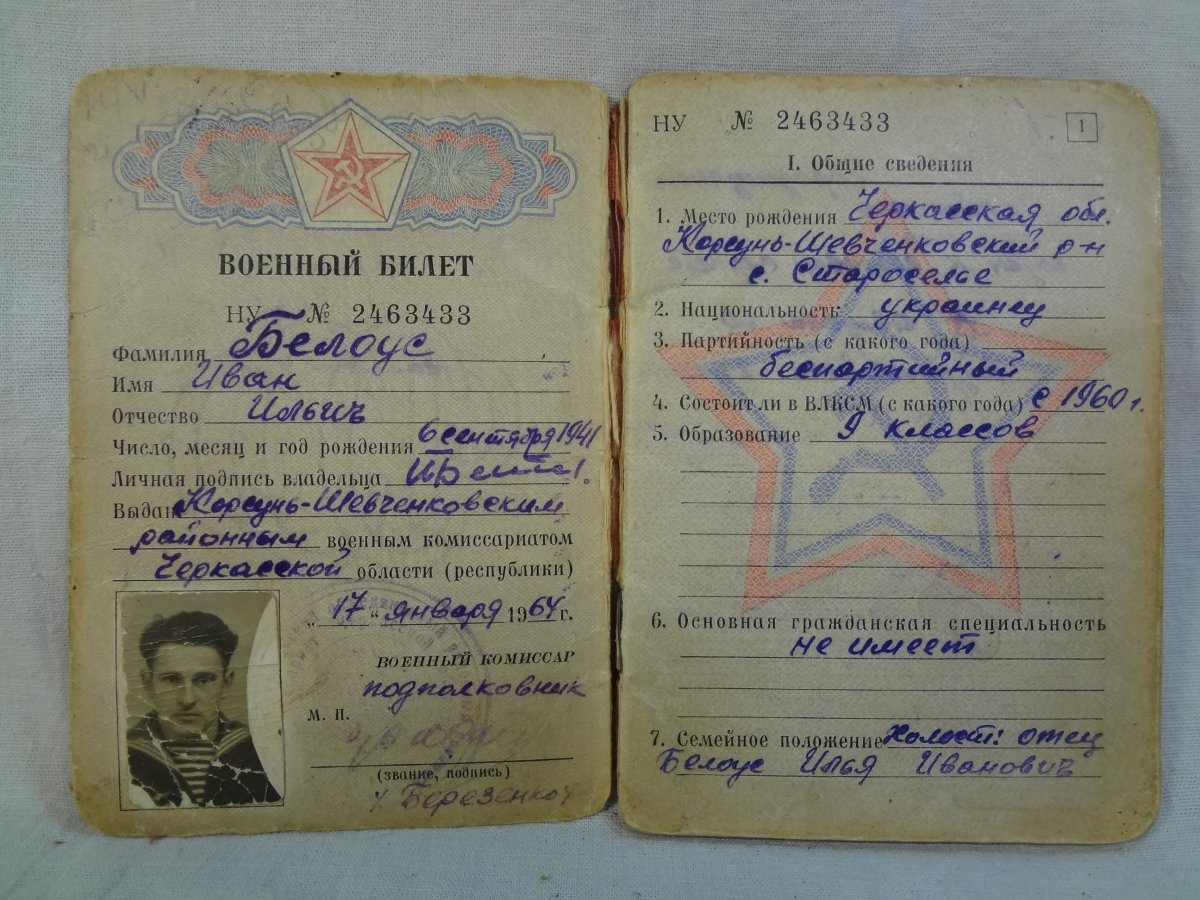 ВОЕННЫЙ БИЛЕТ
НУ № 2463433
Фамилия Белоус
Имя Иван
Отчество Ильич
Число, месяц и год рождения 6 сентября 1941
Личная подпись владельца
Выдан Корсунь-Шевченковским
районным военным комиссариатом
Черкасской области (республики)
„17“ января 1964 г.
ВОЕННЫЙ КОМИССАР
подполковник
М. П.
(звание, подпись)
НУ № 2463433
1
I. Общие сведения
1. Место рождения Черкасская обл.
Корсунь-Шевченковский р-н
с. Староселье
2. Национальность украинец
3. Партийность (с какого года)
беспартийный
4. Состоит ли в ВЛКСМ (с какого года) с 1960 г.
5. Образование 9 классов
6. Основная гражданская специальность
не имеет
7. Семейное положение Холост: отец
Белоус Илья Иванович